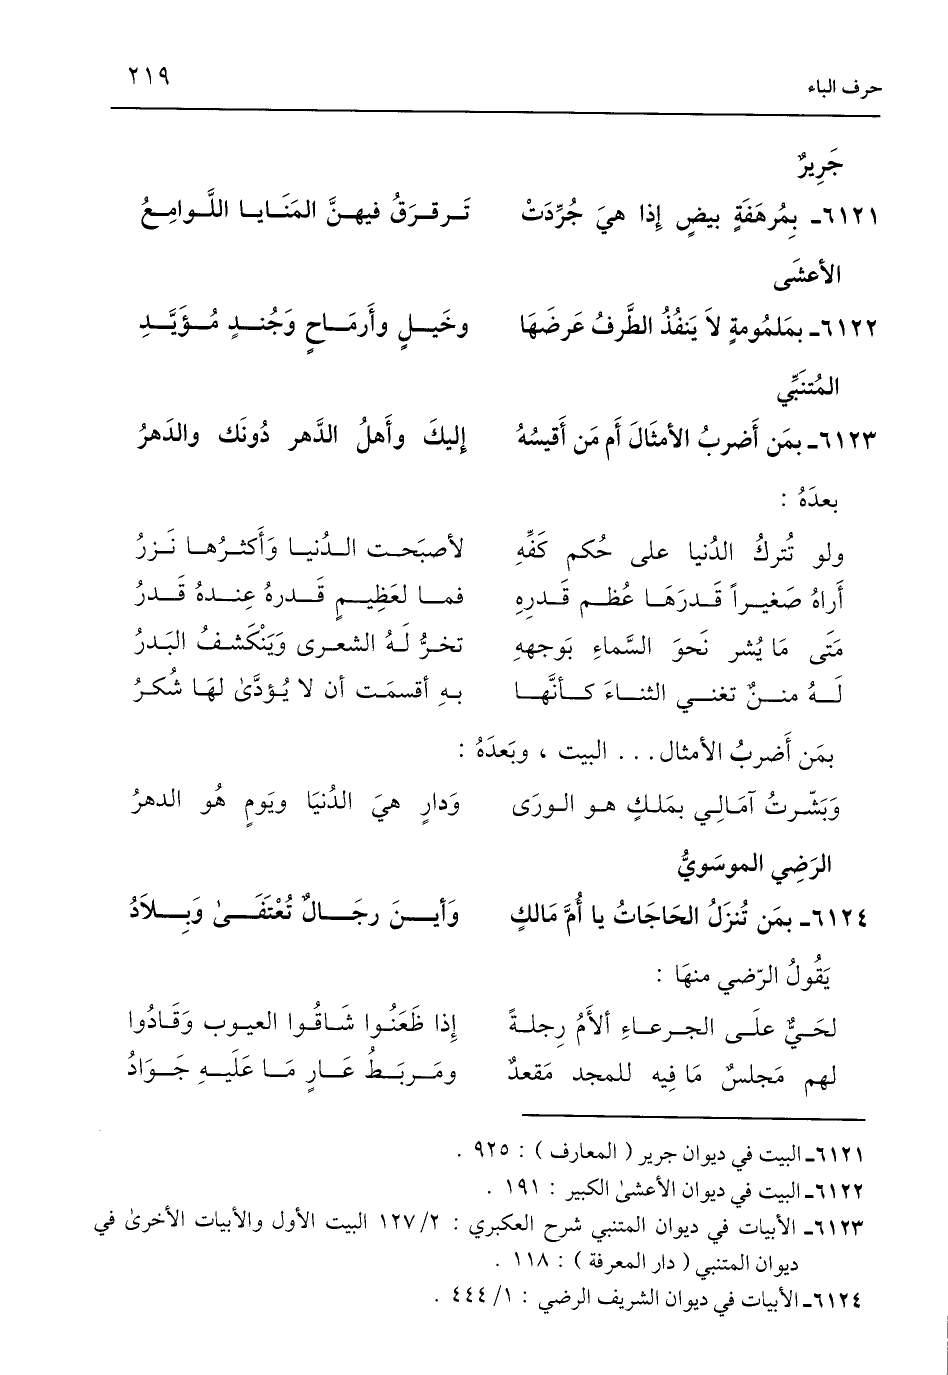 حرف الباء ٢١٩
جَرِيرٌ
٦١٢١ـ بِمُرهَفَةٍ بيضٍ إِذا هيَ جُرِّدَتْ تَرقرَقُ فيهنَّ المَنَايا اللَّوامِعُ
الأعشَى
٦١٢٢ـ بمَلمُومةٍ لاَ يَنفُذُ الطَّرفُ عَرضَهَا وخَيلٍ وأَرمَاحٍ وَجُندٍ مُؤَيَّدِ
المُتنَبِّي
٦١٢٣ـ بمَن أَضربُ الأمثَالَ أم مَن أَقيسُهُ إليكَ وأَهلُ الدَّهر دُونَك والدَهرُ
بعدَهُ :
ولو تُتركُ الدُنيا على حُكمِ كَفِّهِ لأصبَحت الدُنيا وَأكثرُها نَزرُ
أَراهُ صَغيراً قَدرَهَا عُظم قَدرِهِ فما لعَظِيمٍ قَدرهُ عِندهُ قَدرُ
مَتَى مَا يُشر نَحوَ السَّماءِ بَوجههِ تخرُّ لَهُ الشعرى وَيَنْكَشفُ البَدرُ
لَهُ مننٌ تغني الثناءَ كأنَّها بهِ أقسمَت أن لا يُؤدَّىٰ لهَا شُكرُ
بمَن أَضربُ الأمثال . . . البيت ، وبَعدَهُ :
وَبَشّرتُ آمَالِي بمَلكٍ هو الورَى وَدارٍ هيَ الدُنيَا ويَومٍ هُو الدهرُ
الرَضِي الموسَويُّ
٦١٢٤ـ بمَن تُنزَلُ الحَاجَاتُ يا أُمَّ مَالكٍ وَأينَ رجَالٌ تُعْتَفَىٰ وَبِلاَدُ
يَقُولُ الرّضي منهَا :
لحَيٌّ علَى الجرعاءِ ألأَمُ رِجلةً إِذا ظَعَنُوا شَاقُوا العيوب وَقَادُوا
لهم مَجلسٌ مَا فِيه للمجد مَقعدٌ ومَربَطُ عَارٍ مَا عَلَيهِ جَوَادُ
٦١٢١ـ البيت في ديوان جرير ( المعارف ) : ٩٢٥ .
٦١٢٢ـ البيت في ديوان الأعشىٰ الكبير : ١٩١ .
٦١٢٣ـ الأبيات في ديوان المتنبي شرح العكبري : ٢/ ١٢٧ البيت الأول والأبيات الأخرىٰ في
ديوان المتنبي ( دار المعرفة ) : ١١٨ .
٦١٢٤ـ الأبيات في ديوان الشريف الرضي : ١/ ٤٤٤ .